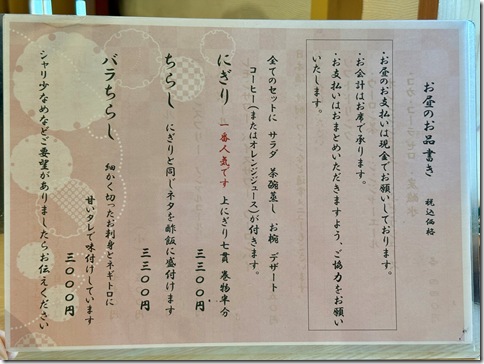 お昼のお品書き 税込価格
・お昼のお支払いは現金でお願いしております。
・お会計はお席で承ります。
・お支払いはおまとめいただきますよう、ご協力をお願い
いたします。
全てのセットに サラダ 茶碗蒸し お椀 デザート
コーヒー(またはオレンジジュース)が付きます。
にぎり 一番人気です 上にぎり七貫 巻物半分
三三〇〇円
ちらし にぎりと同じネタを酢飯に盛付けます
三三〇〇円
バラちらし 細かく切ったお刺身とネギトロに
甘いタレで味付けしています
三〇〇〇円
シャリ少なめなどご要望がありましたらお伝えください